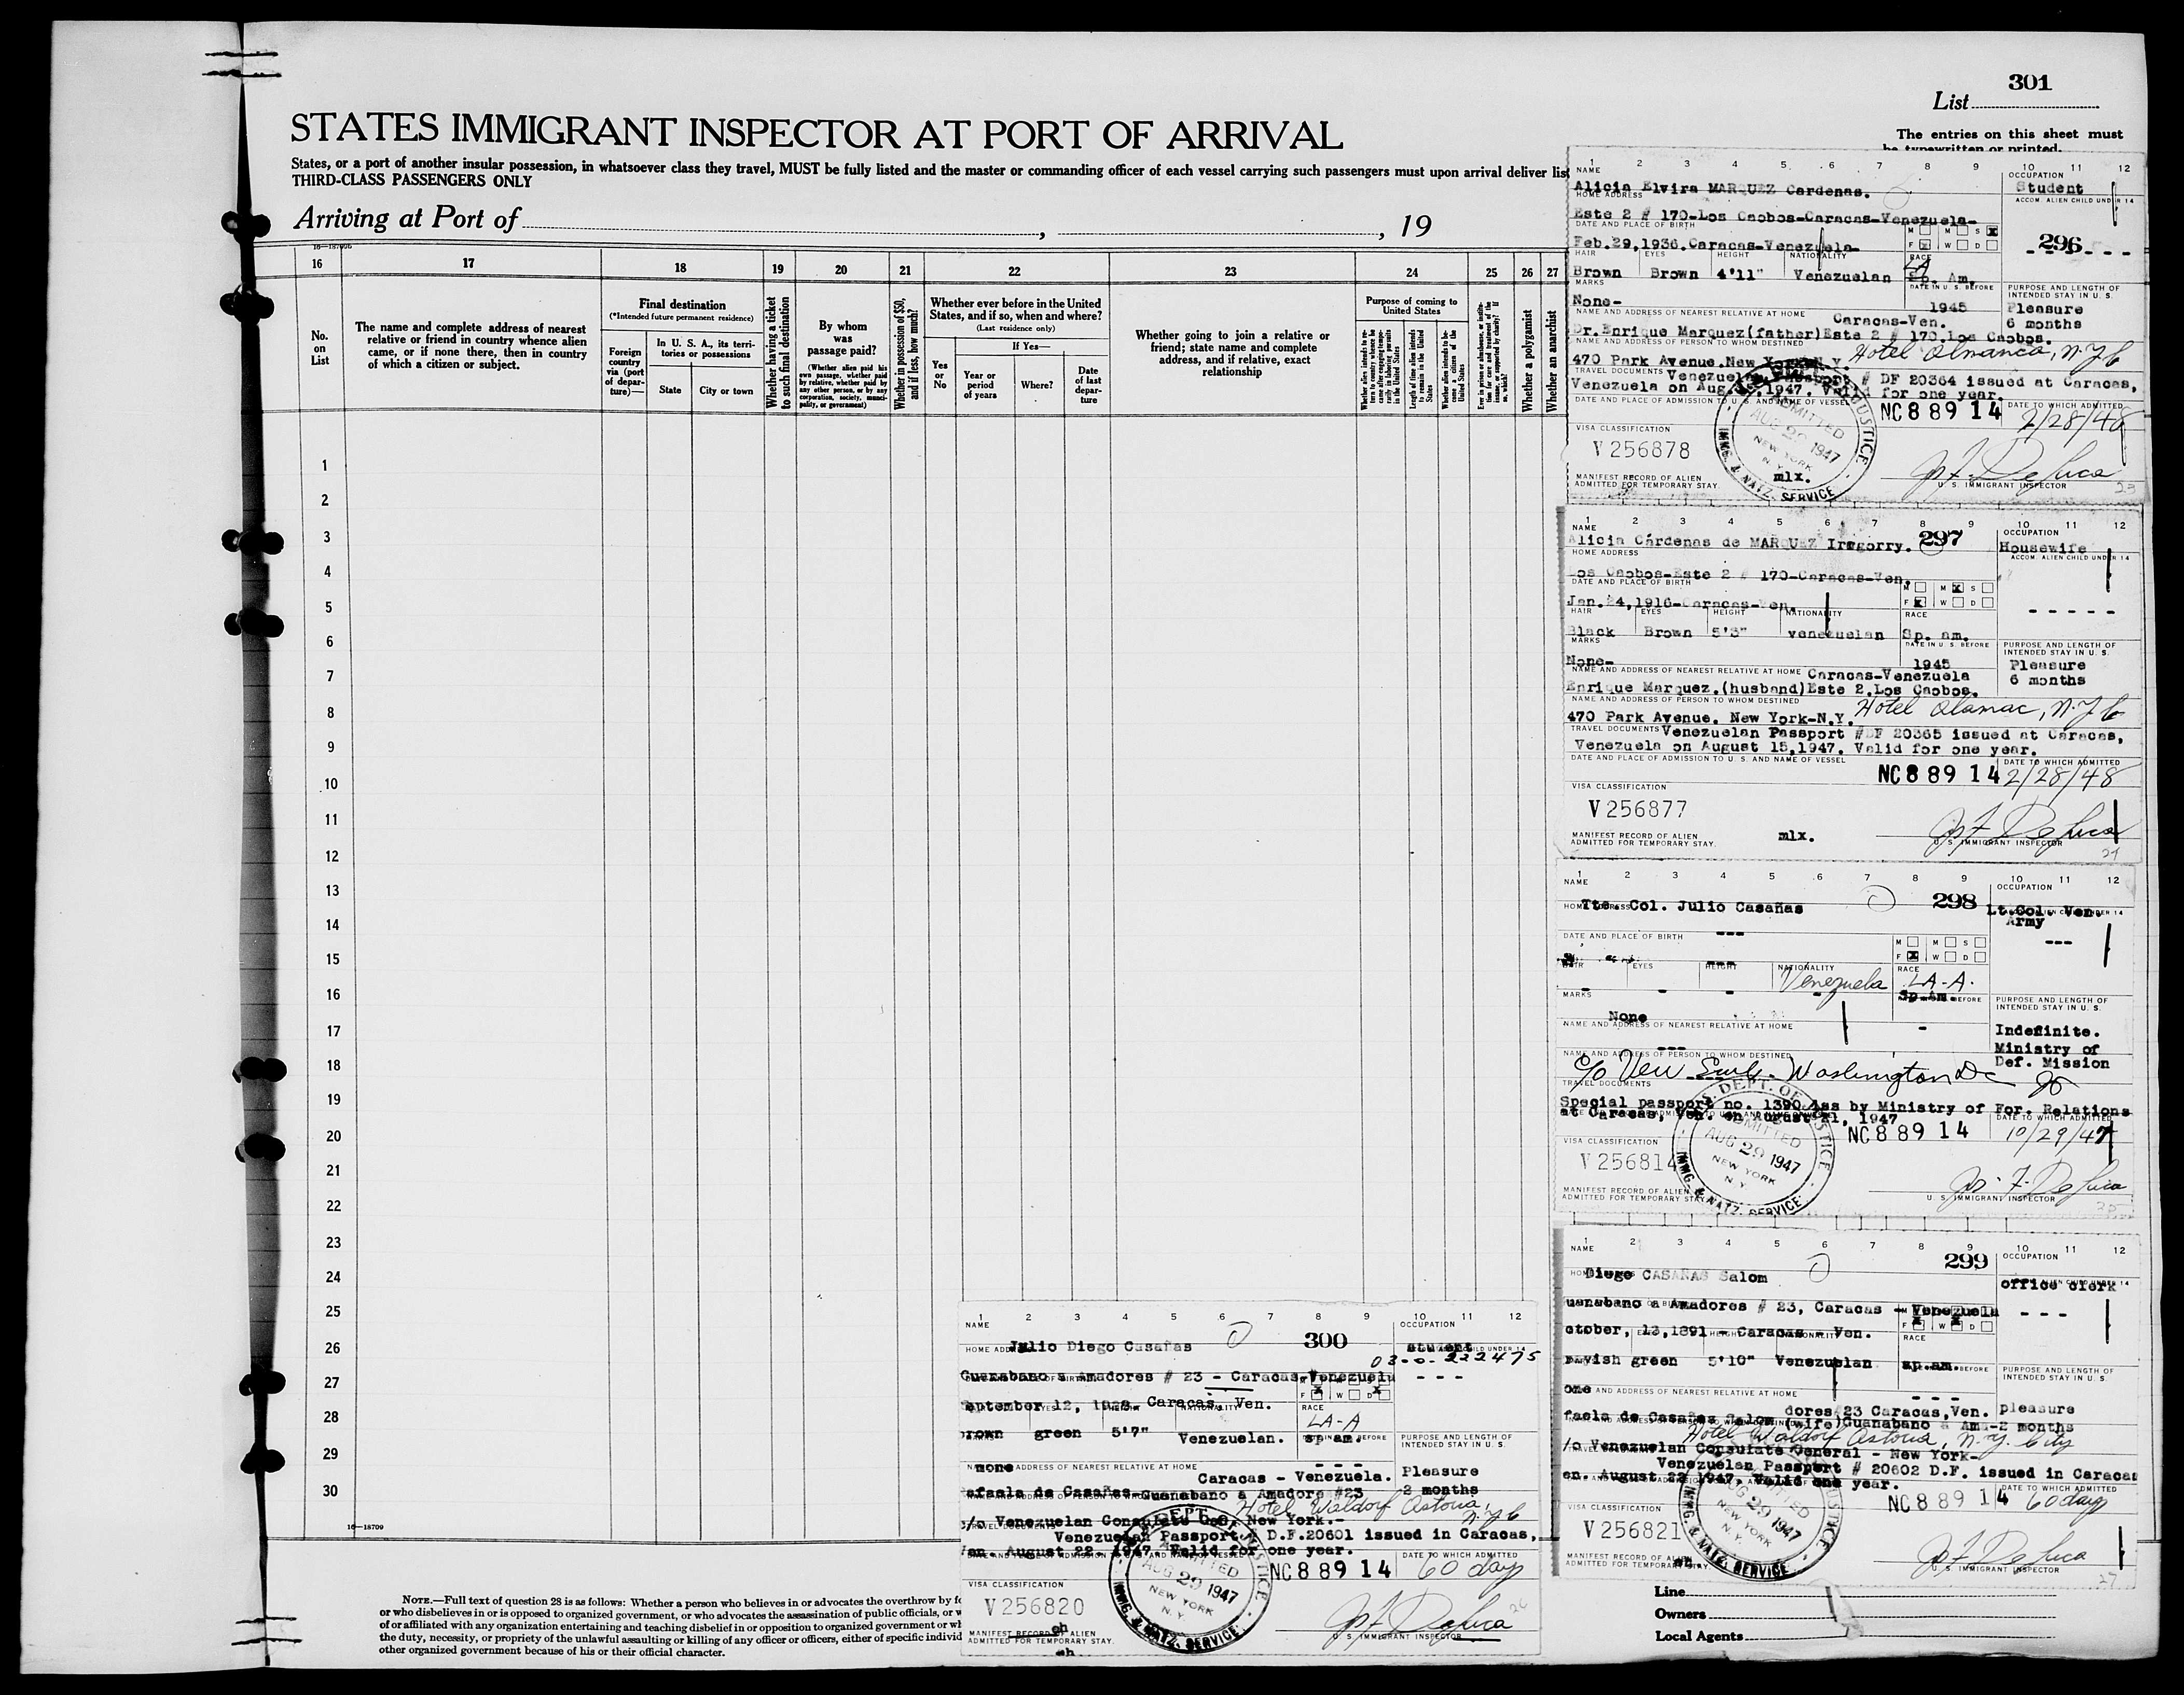 301
List
STATES IMMIGRANT INSPECTOR AT PORT OF ARRIVAL
The entries on this sheet must
be typewritten or printed.
States, or a port of another insular possession, in whatsoever class they travel, MUST be fully listed and the master or commanding officer of each vessel carrying such passengers must upon arrival deliver
THIRD-CLASS PASSENGERS ONLY
Arriving at Port of , , 19
16 17 18 19 20 21 22 23 24 25 26 27
No. on List
The name and complete address of nearest relative or friend in country whence alien came, or if none there, then in country of which a citizen or subject.
Final destination
(*Intended future permanent residence)
Foreign country via (port of departure)—
In U. S. A., its territories or possessions
State
City or town
Whether having a ticket to such final destination
By whom was passage paid?
(Whether alien paid his own passage, whether paid by relative, whether paid by any other person, or by any corporation, society, municipality, or government)
Whether in possession of $50, and if less, how much?
Whether ever before in the United States, and if so, when and where?
(Last residence only)
Yes or No
If Yes—
Year or period of years
Where?
Date of last departure
Whether going to join a relative or friend; state name and complete address, and if relative, exact relationship
Purpose of coming to United States
Length of time alien intends to remain in the United States
Whether alien intends to become a citizen of the United States
Whether a polygamist
Whether an anarchist
1
2
3
4
5
6
7
8
9
10
11
12
13
14
15
16
17
18
19
20
21
22
23
24
25
26
27
28
29
30
16—18709
NOTE.—Full text of question 28 is as follows: Whether a person who believes in or advocates the overthrow by
or who disbelieves in or is opposed to organized government, or who advocates the assassination of public officials, or
of or affiliated with any organization entertaining and teaching disbelief in or opposition to organized government or
the duty, necessity, or propriety of the unlawful assaulting or killing of any officer or officers, either of specific
other organized government because of his or their official character.
1 2 3 4 5 6 7 8 9 10 11 12
NAME
OCCUPATION
Alicia Elvira MARQUEZ Cardenas.
Student
HOME ADDRESS
ACCOM. ALIEN CHILD UNDER 14
Este 2 # 170-Los Caobos-Caracas-Venezuela-
DATE AND PLACE OF BIRTH
M M S X
296
Feb.29,1936.Caracas-Venezuela-
F X W D
HAIR EYES HEIGHT NATIONALITY RACE
LA
Brown Brown 4'11" Venezuelan Sp. Am.
MARKS
DATE IN U. S. BEFORE
PURPOSE AND LENGTH OF INTENDED STAY IN U. S.
None-
1945
Pleasure
6 months
NAME AND ADDRESS OF NEAREST RELATIVE AT HOME
Caracas-Ven.
Dr.Enrique Marquez(father)Este 2 # 170.Los Caobos.
NAME AND ADDRESS OF PERSON TO WHOM DESTINED
470 Park Avenue.New York-N.Y.
TRAVEL DOCUMENTS
Venezuelan Passport # DF 20364 issued at Caracas,
Venezuela on Aug. 1947. Valid for one year.
DATE AND PLACE OF ADMISSION TO U. S. AND NAME OF VESSEL
NC 8 89 14
DATE TO WHICH ADMITTED
2/28/48
VISA CLASSIFICATION
V 256878
ADMITTED
AUG 29 1947
NEW YORK
N. Y.
IMMIG. & NATZ. SERVICE
MANIFEST RECORD OF ALIEN ADMITTED FOR TEMPORARY STAY.
mlx.
Jos F De Luca
U. S. IMMIGRANT INSPECTOR
23
1 2 3 4 5 6 7 8 9 10 11 12
NAME
297
OCCUPATION
Alicia Cárdenas de MARQUEZ Iragorry.
Housewife
HOME ADDRESS
ACCOM. ALIEN CHILD UNDER 14
Los Caobos-Este 2 # 170-Caracas-Ven.
DATE AND PLACE OF BIRTH
M M X S
Jan.24,1916-Caracas-Ven.
F X W D
HAIR EYES HEIGHT NATIONALITY RACE
Black Brown 5'3" venezuelan Sp. am.
MARKS
DATE IN U. S. BEFORE
PURPOSE AND LENGTH OF INTENDED STAY IN U. S.
None-
1945
Pleasure
6 months
NAME AND ADDRESS OF NEAREST RELATIVE AT HOME
Caracas-Venezuela
Enrique Marquez.(husband)Este 2.Los Caobos.
NAME AND ADDRESS OF PERSON TO WHOM DESTINED
Hotel Alamac, N.Y.C
470 Park Avenue. New York-N.Y.
TRAVEL DOCUMENTS
Venezuelan Passport #DF 20365 issued at Caracas,
Venezuela on August 15,1947. Valid for one year.
DATE AND PLACE OF ADMISSION TO U. S. AND NAME OF VESSEL
NC 8 89 14
DATE TO WHICH ADMITTED
2/28/48
VISA CLASSIFICATION
V 256877
MANIFEST RECORD OF ALIEN ADMITTED FOR TEMPORARY STAY.
mlx.
Jos F De Luca
U. S. IMMIGRANT INSPECTOR
1 2 3 4 5 6 7 8 9 10 11 12
NAME
298
OCCUPATION
Tte. Col. Julio Casañas
Lt.Col. Ven.
Army
DATE AND PLACE OF BIRTH
M M S
F X W D
HAIR EYES HEIGHT NATIONALITY RACE
Venezuela
LA-A.
Sp.Am.
MARKS
None
PURPOSE AND LENGTH OF INTENDED STAY IN U. S.
NAME AND ADDRESS OF NEAREST RELATIVE AT HOME
Indefinite.
Ministry of
Def. Mission
NAME AND ADDRESS OF PERSON TO WHOM DESTINED
c/o Ven Emb. Washington Dc
TRAVEL DOCUMENTS
Special passport no. 1390 iss by Ministry of For. Relations
at Caracas, Ven. on August 21, 1947
DATE TO WHICH ADMITTED
NC 8 89 14
10/29/47
VISA CLASSIFICATION
V 256814
DEPT. OF JUSTICE
ADMITTED
AUG 29 1947
NEW YORK
N. Y.
IMMIG. & NATZ. SERVICE
MANIFEST RECORD OF ALIEN ADMITTED FOR TEMPORARY STAY.
Jos. F. De Luca
U. S. IMMIGRANT INSPECTOR
1 2 3 4 5 6 7 8 9 10 11 12
NAME
299
OCCUPATION
Diego CASAÑAS Salom
office clerk
uanabano a Amadores # 23, Caracas - Venezuela
ctober, 13,1891 - Caracas - Ven.
RACE
green 5'10" Venezuelan sp.am.
PURPOSE AND LENGTH OF INTENDED STAY IN U. S.
one
AND ADDRESS OF NEAREST RELATIVE AT HOME
dores#23 Caracas,Ven.
pleasure
faela de Casañas Salom (wife)Guanabano a Ama-
2 months
Hotel Waldorf Astoria, N.Y. City
/o Venezuelan Consulate General - New York-
Venezuelan Passport # 20602 D.F. issued in Caracas
en. August 22 1947. Valid one year.
DATE TO WHICH ADMITTED
NC 8 89 14
60 days
VISA CLASSIFICATION
V 256821
AUG 29 1947
NEW YORK
N. Y.
IMMIG. & NATZ. SERVICE
MANIFEST RECORD OF ALIEN ADMITTED FOR TEMPORARY STAY.
Jos F De Luca
U. S. IMMIGRANT INSPECTOR
27
1 2 3 4 5 6 7 8 9 10 11 12
NAME
300
OCCUPATION
Julio Diego Casañas
student
HOME ADDRESS
03-0-222475
Guanabano a Amadores # 23 - Caracas, Venezuela
eptember 12, 1928. Caracas, Ven.
RACE
LA-A
rown green 5'7" Venezuelan. sp am.
PURPOSE AND LENGTH OF INTENDED STAY IN U. S.
none
ADDRESS OF NEAREST RELATIVE AT HOME
Caracas - Venezuela.
Pleasure
afaela de Casañas-Guanabano a Amadore #23
2 months
Hotel Waldorf Astoria, N.Y.C
c/o Venezuelan Consulate Gen. New York.-
Venezuelan Passport D.F.20601 issued in Caracas,
August 22- 1947 Valid for one year.
NC 8 89 14
DATE TO WHICH ADMITTED
60 days
VISA CLASSIFICATION
V 256820
AUG 29 1947
NEW YORK
N. Y.
IMMIG. & NATZ. SERVICE
MANIFEST RECORD OF ALIEN ADMITTED FOR TEMPORARY STAY.
eh
eh
Jos F De Luca
U. S. IMMIGRANT INSPECTOR
26
Line
Owners
Local Agents